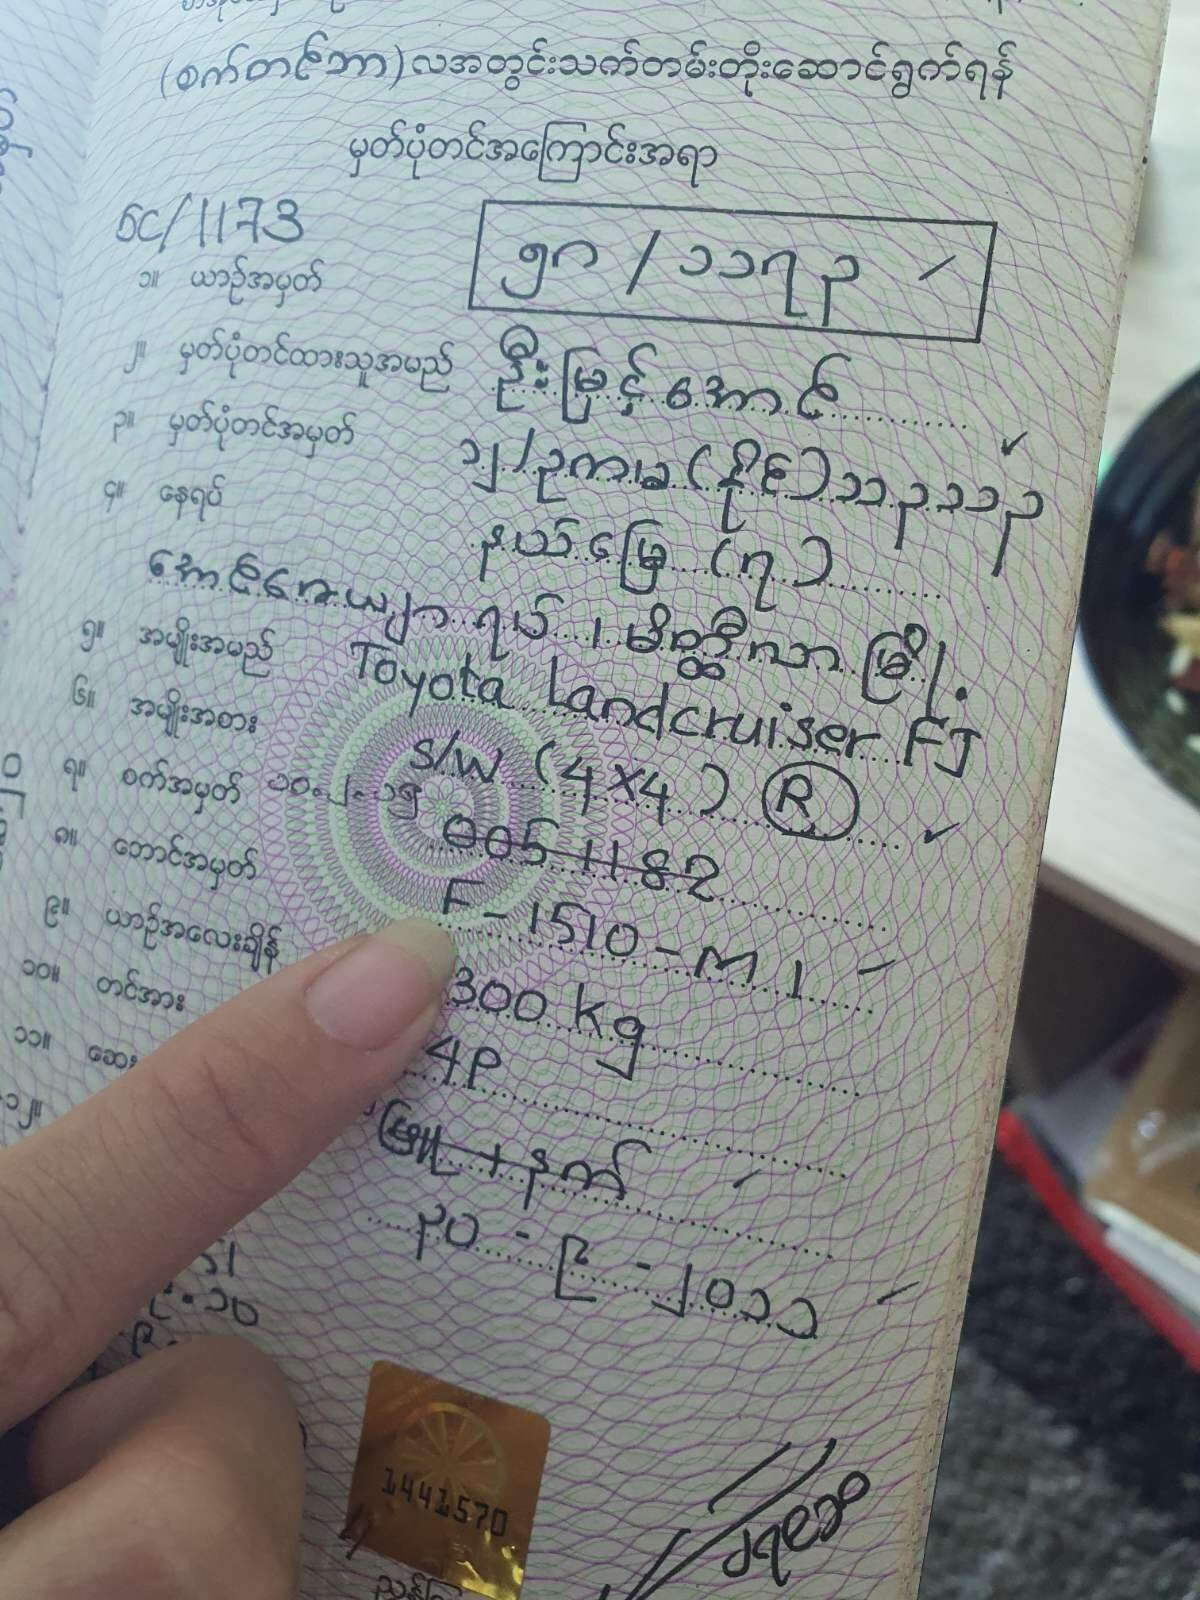 (စက်တင်ဘာ)လအတွင်းသက်တမ်းတိုးဆောင်ရွက်ရန်
မှတ်ပုံတင်အကြောင်းအရာ
5C/1173
၁။ ယာဉ်အမှတ် ၅ဂ / ၁၁၇၃
၂။ မှတ်ပုံတင်ထားသူအမည် ဦးမြင့်အောင်
၃။ မှတ်ပုံတင်အမှတ် ၁၂/ဥကမ (နိုင်) ၁၁၃၁၁၃
၄။ နေရပ် နယ်မြေ (၇)
အောင်ဇေယျာ ရပ် ၊ မိတ္ထီလာ မြို့.
၅။ အမျိုးအမည် Toyota Landcruiser FJ
၆။ အမျိုးအစား S/W (4x4) R
၇။ စက်အမှတ် ၁၀.၂.၁၅ 0051182
၈။ ဘောင်အမှတ် F-1510-M1
၉။ ယာဉ်အလေးချိန် 300 Kg
၁၀။ တင်အား 4P
၁၁။ ဆေး ဖြူ + နက်
၁၂။ ၃၀ - ၉ - ၂၀၁၁
1441570